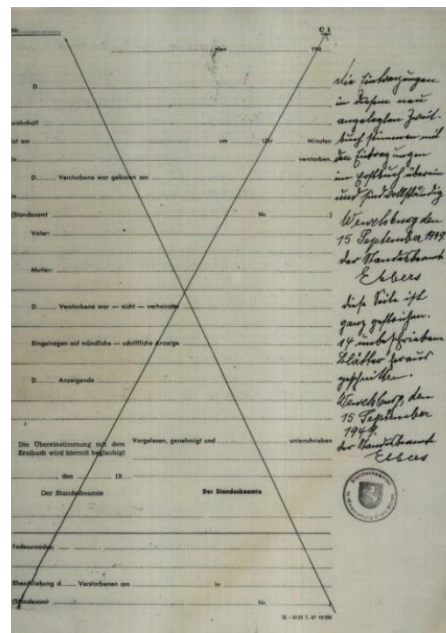 Nr.
C 1
, den 194
D
wohnhaft
ist am um Uhr Minuten
verstorben.
D Verstorbene war geboren am
(Standesamt Nr. )
Vater:
Mutter:
D Verstorbene war — nicht — verheiratet
Eingetragen auf mündliche — schriftliche Anzeige
D Anzeigende
Die Übereinstimmung mit dem
Erstbuch wird hiermit beglaubigt
Vorgelesen, genehmigt und unterschrieben
, den 19
Der Standesbeamte
Der Standesbeamte
Todesursache:
Eheschließung d. Verstorbenen am in
(Standesamt Nr.
Die Eintragungen
in diesem neu
angelegten Zweit-
buch stimmen mit
den Eintragungen
im Erstbuch überein
und sind vollständig
Wewelsburg, den
15 September 1949
der Standesbeamte
Ebbers
diese Seite ist
ganz gestrichen.
14 unbeschriebene
Blätter heraus
geschnitten.
Wewelsburg, den
15 September
1949.
der Standesbeamte
Ebbers